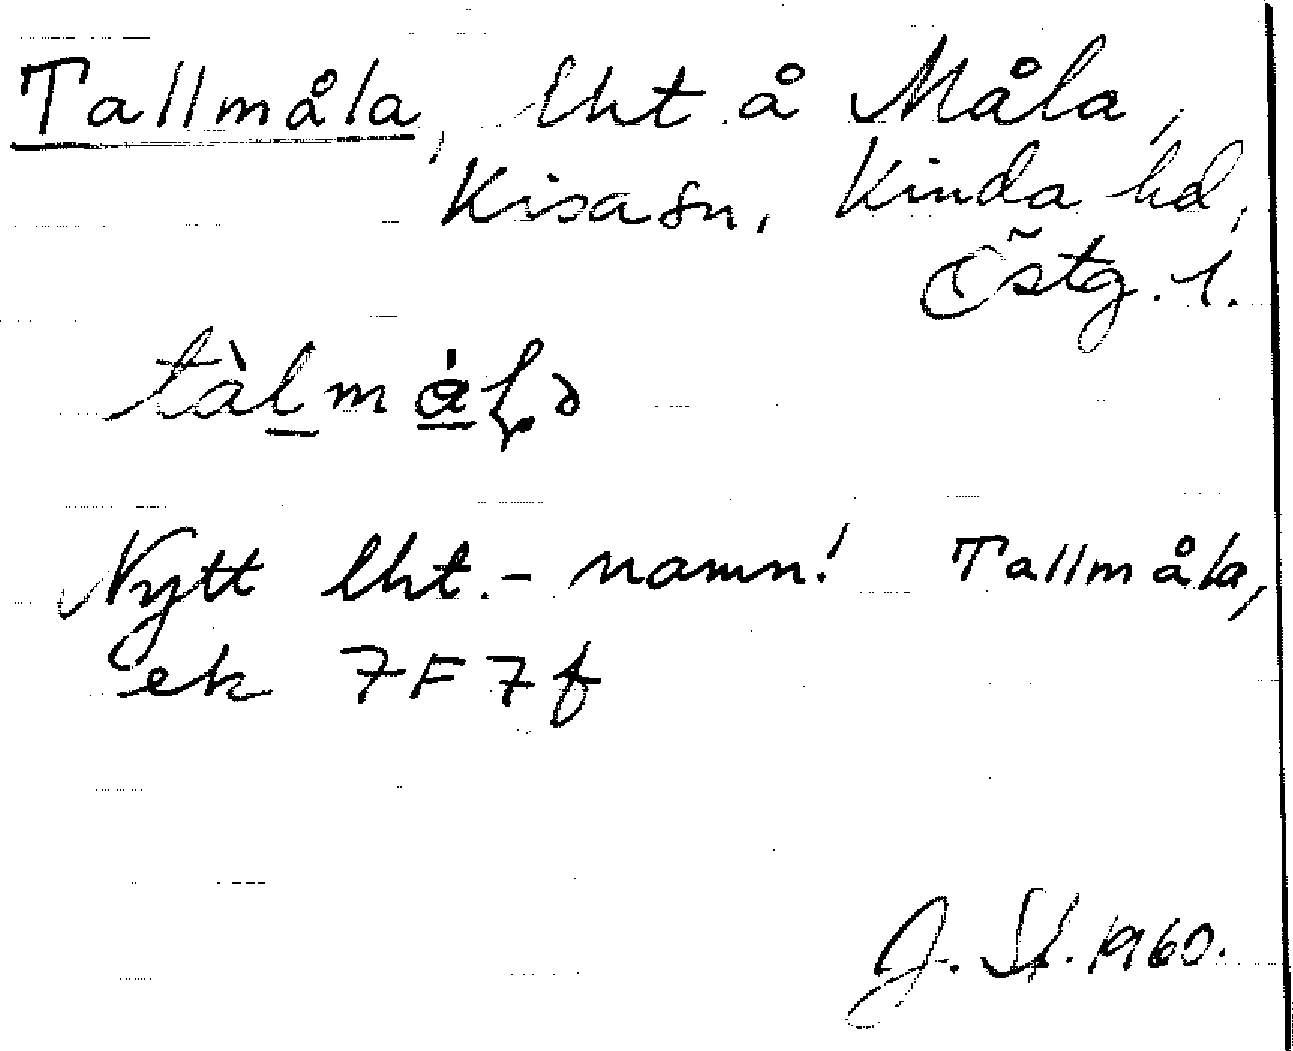 Tallmåla, lht å Måla,
Kisa sn, Kinda hd,
Östg. l.
tàl̲má̲ɽə
Nytt lht.-namn! Tallmåla,
ek 7F7f
J. St. 1960.